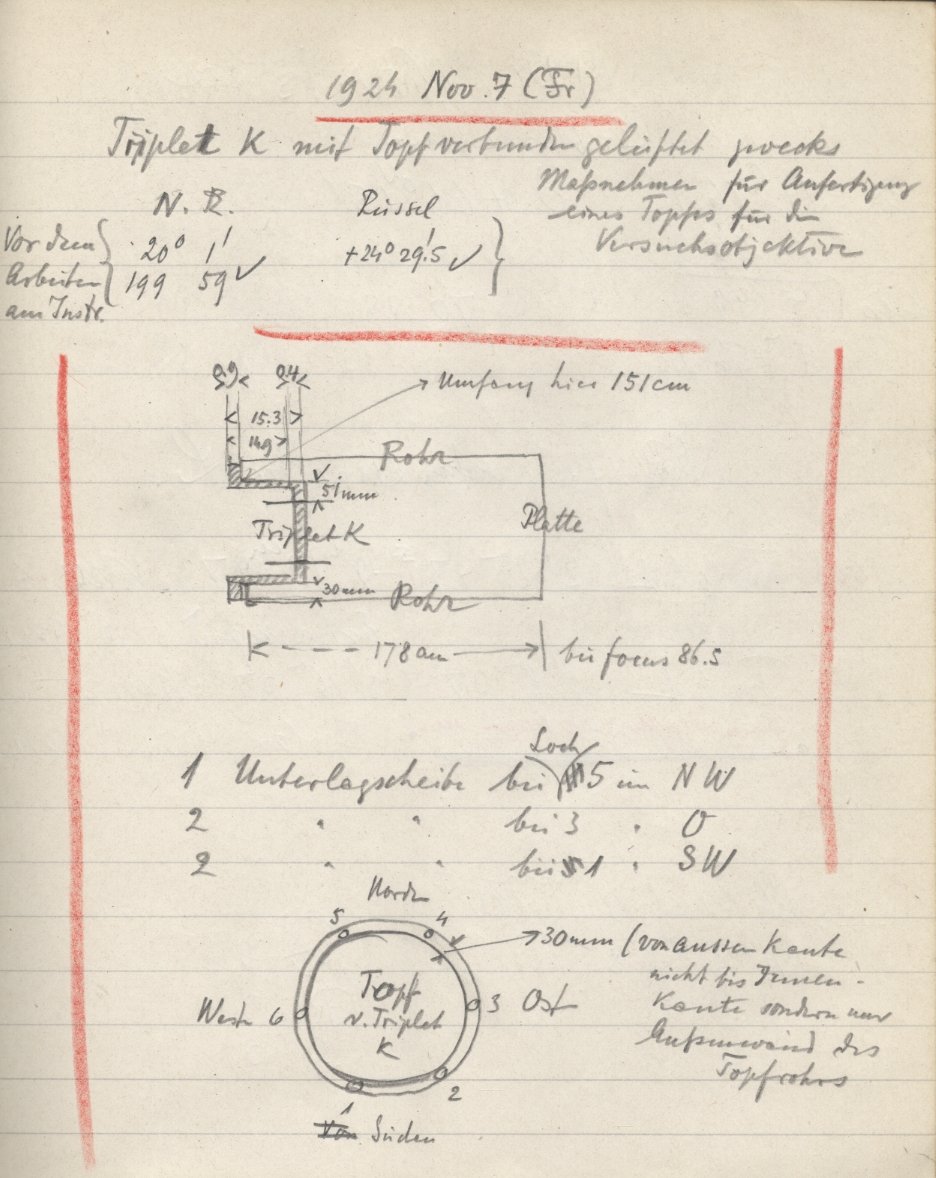 1924 Nov. 7 (Fr)
Triplet K mit Topf verbunden gelüftet zwecks
Maßnehmen für Anfertigung
eines Topfes für die
Versuchsobjektive
N. R. Rüssel
Vor den 20° 1' +24° 29.'5 ✓
Arbeiten 199 59 ✓
am Instr.
15.3
Umfang hier 151 cm
Rohr
51 mm
Triplet K
Platte
30 mm
Rohr
178 cm bis focus 86.5
Loch
1 Unterlagscheibe bei 5 im NW
2 " " bei 3 " O
2 " " bei 1 " SW
Norden
5 4
30 mm (von aussen Kante
nicht bis Innen-
Kante sondern nur
Außenwand des
Topfrohrs
West 6 Topf 3 Ost
v. Triplet
K
1 2
Süden